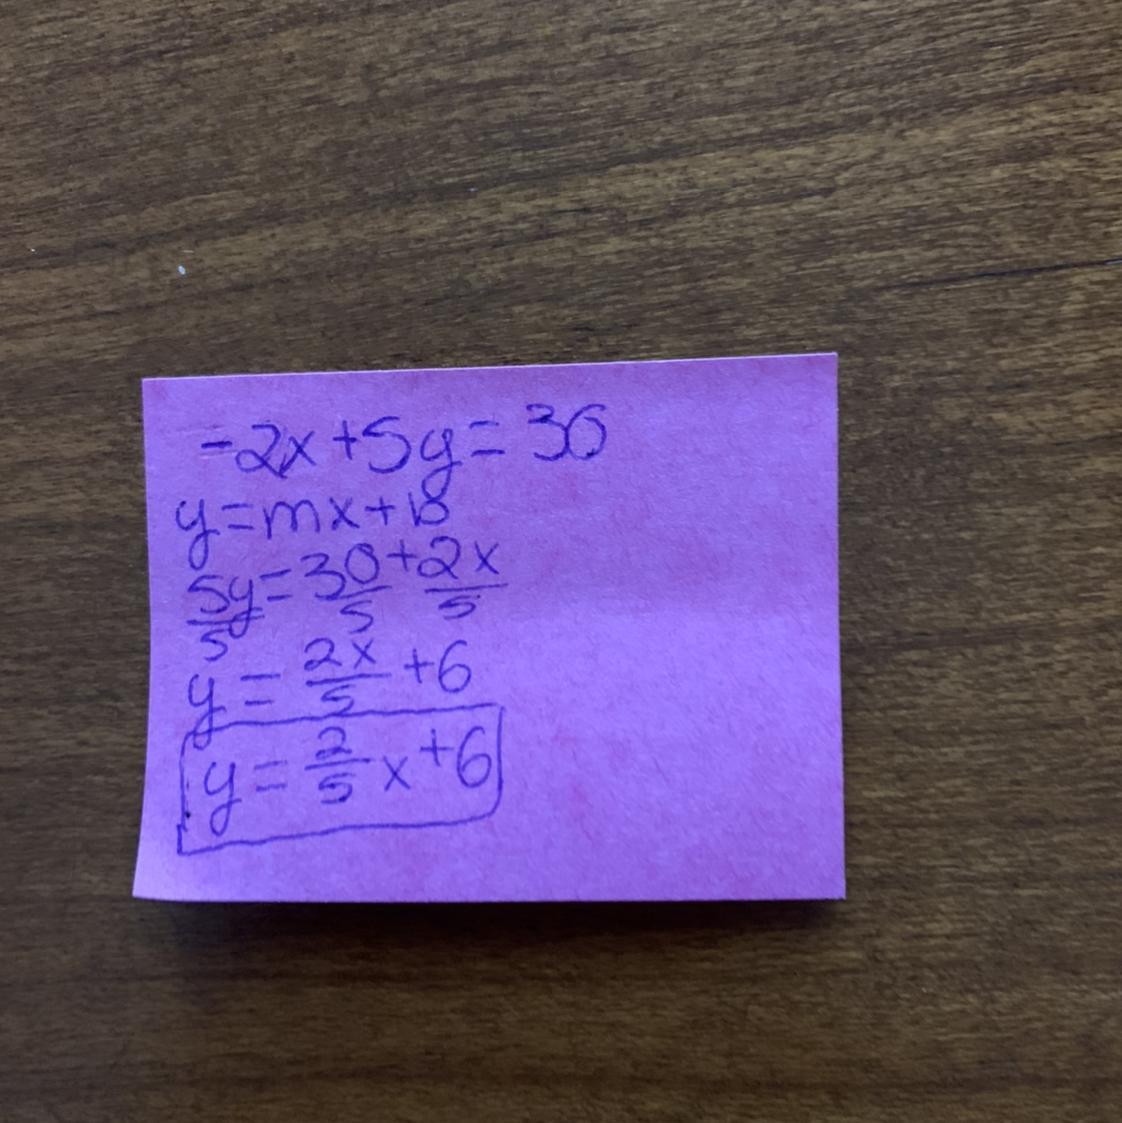 -2x+5y=30
y=mx+b
5y/5=30/5+2x/5
y=2x/5+6
y=2/5x+6